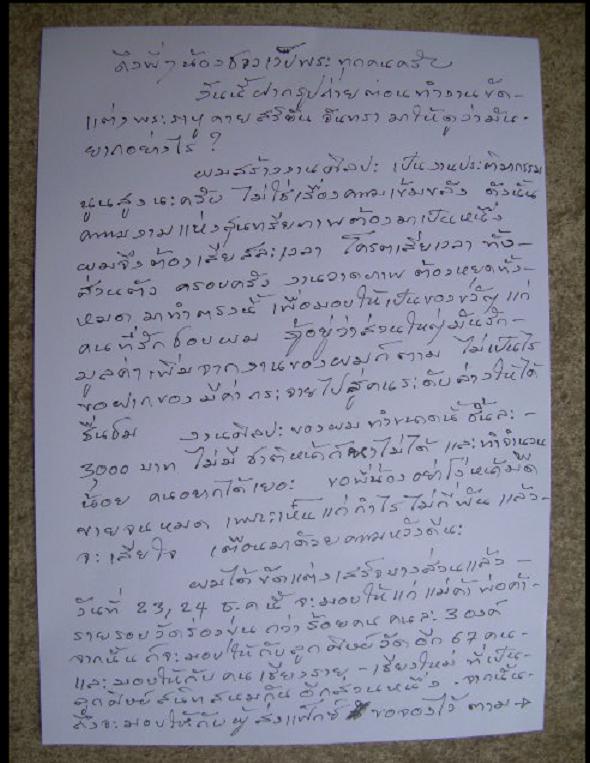 ถึงพี่ๆน้องชาวเว็ปพระ ทุกคนครับ
วันนี้ฝากรูปถ่ายตอนทำงานขัด-
แต่งพระราหู กายสุริยัน จันทรา มาให้ดูว่ามัน-
ยากอย่างไร ?
ผมสร้างงานศิลปะ เป็นงานประติมากรรม
นูนสูงนะครับ ไม่ใช่เรื่องความเข้มขลัง ดังนั้น
ความงามแห่งสุนทรียภาพต้องมาเป็นหนึ่ง
ผมจึงต้องเสียสละเวลา โคตรเสียเวลา ทั้ง-
ส่วนตัว ครอบครัว งานวาดภาพ ต้องหยุดทั้ง-
หมด มาทำตรงนี้ เพื่อมอบให้เป็นของขวัญ แก่
คนที่รักชอบผม รู้อยู่ว่าส่วนใหญ่มันรัก-
มูลค่าเพิ่มจากงานของผมก็ตาม ไม่เป็นไร
ขอฝากของมีค่ากระจายไปสู่คนระดับล่างให้ได้
ชื่นชม งานศิลปะของผม ทำขนาดนี้ ชิ้นละ -
3,000 บาท ไม่มี ชาติหน้าก็หาไม่ได้ และทำจำนวน
น้อย คนอยากได้เยอะ ขอพี่น้องอย่าโง่หน้ามืด
ขายจนหมด เพราะเห็นแก่กำไร ไม่กี่พัน แล้ว-
จะเสียใจ เตือนมาด้วยความหวังดีนะ
ผมได้ขัดแต่งเสร็จบางส่วนแล้ว -
วันที่ 23, 24 ธ.ค นี้ จะมอบให้แก่ แม่ค้า พ่อค้า -
รายรอบวัดร่องขุ่น กว่าร้อยคน คนละ 3 องค์
จากนั้น ก็จะมอบให้กับลูกศิษย์วัดอีก 67 คน-
และมอบให้กับ คนเชียงราย - เชียงใหม่ ที่เป็น-
ลูกศิษย์สนิทสนมกัน อีกส่วนหนึ่ง . จากนั้น-
ถึงจะมอบให้กับผู้ส่งแฟ็กซ์ ขอจองไว้ ตาม →